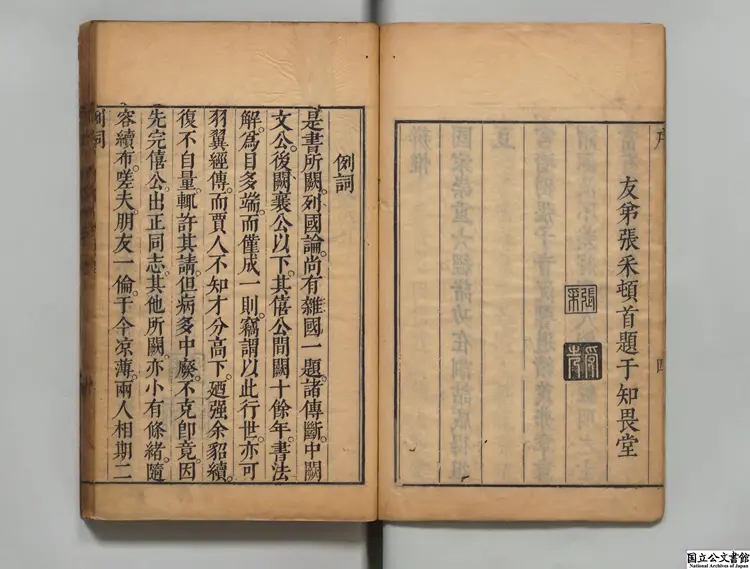 序
友弟張采頓首題于知畏堂
張采
受先
四
例詞
是書所闕。列國論。尚有雜國一題。諸傳斷。中闕
文公。後闕襄公以下。其僖公間闕十餘年。書法
解。為目多端。而僅成一則。竊謂以此行世。亦可
羽翼經傳。而賈人不知才分高下。廼强余貂續。
復不自量。輒許其請。但病多中廢。不克卽竟。因
先完僖公。出正同志。其他所闕。亦小有條緒。隨
容續布。嗟夫。朋友一倫。于今凉薄。兩人相期二
例詞
国立公文書館
National Archives of Japan